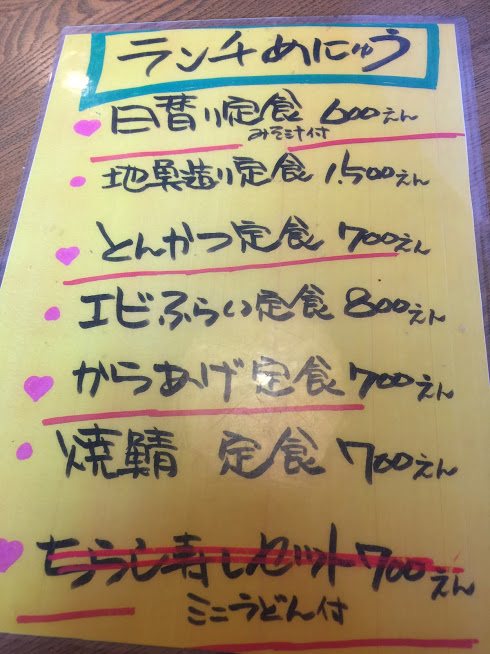 ランチめにゅう
日替り定食 600えん
みそ汁付
地魚造り定食 1,500えん
とんかつ定食 700えん
エビふらい定食 800えん
からあげ定食 700えん
焼鯖 定食 700えん
ちらし寿しセット 700えん
ミニうどん付